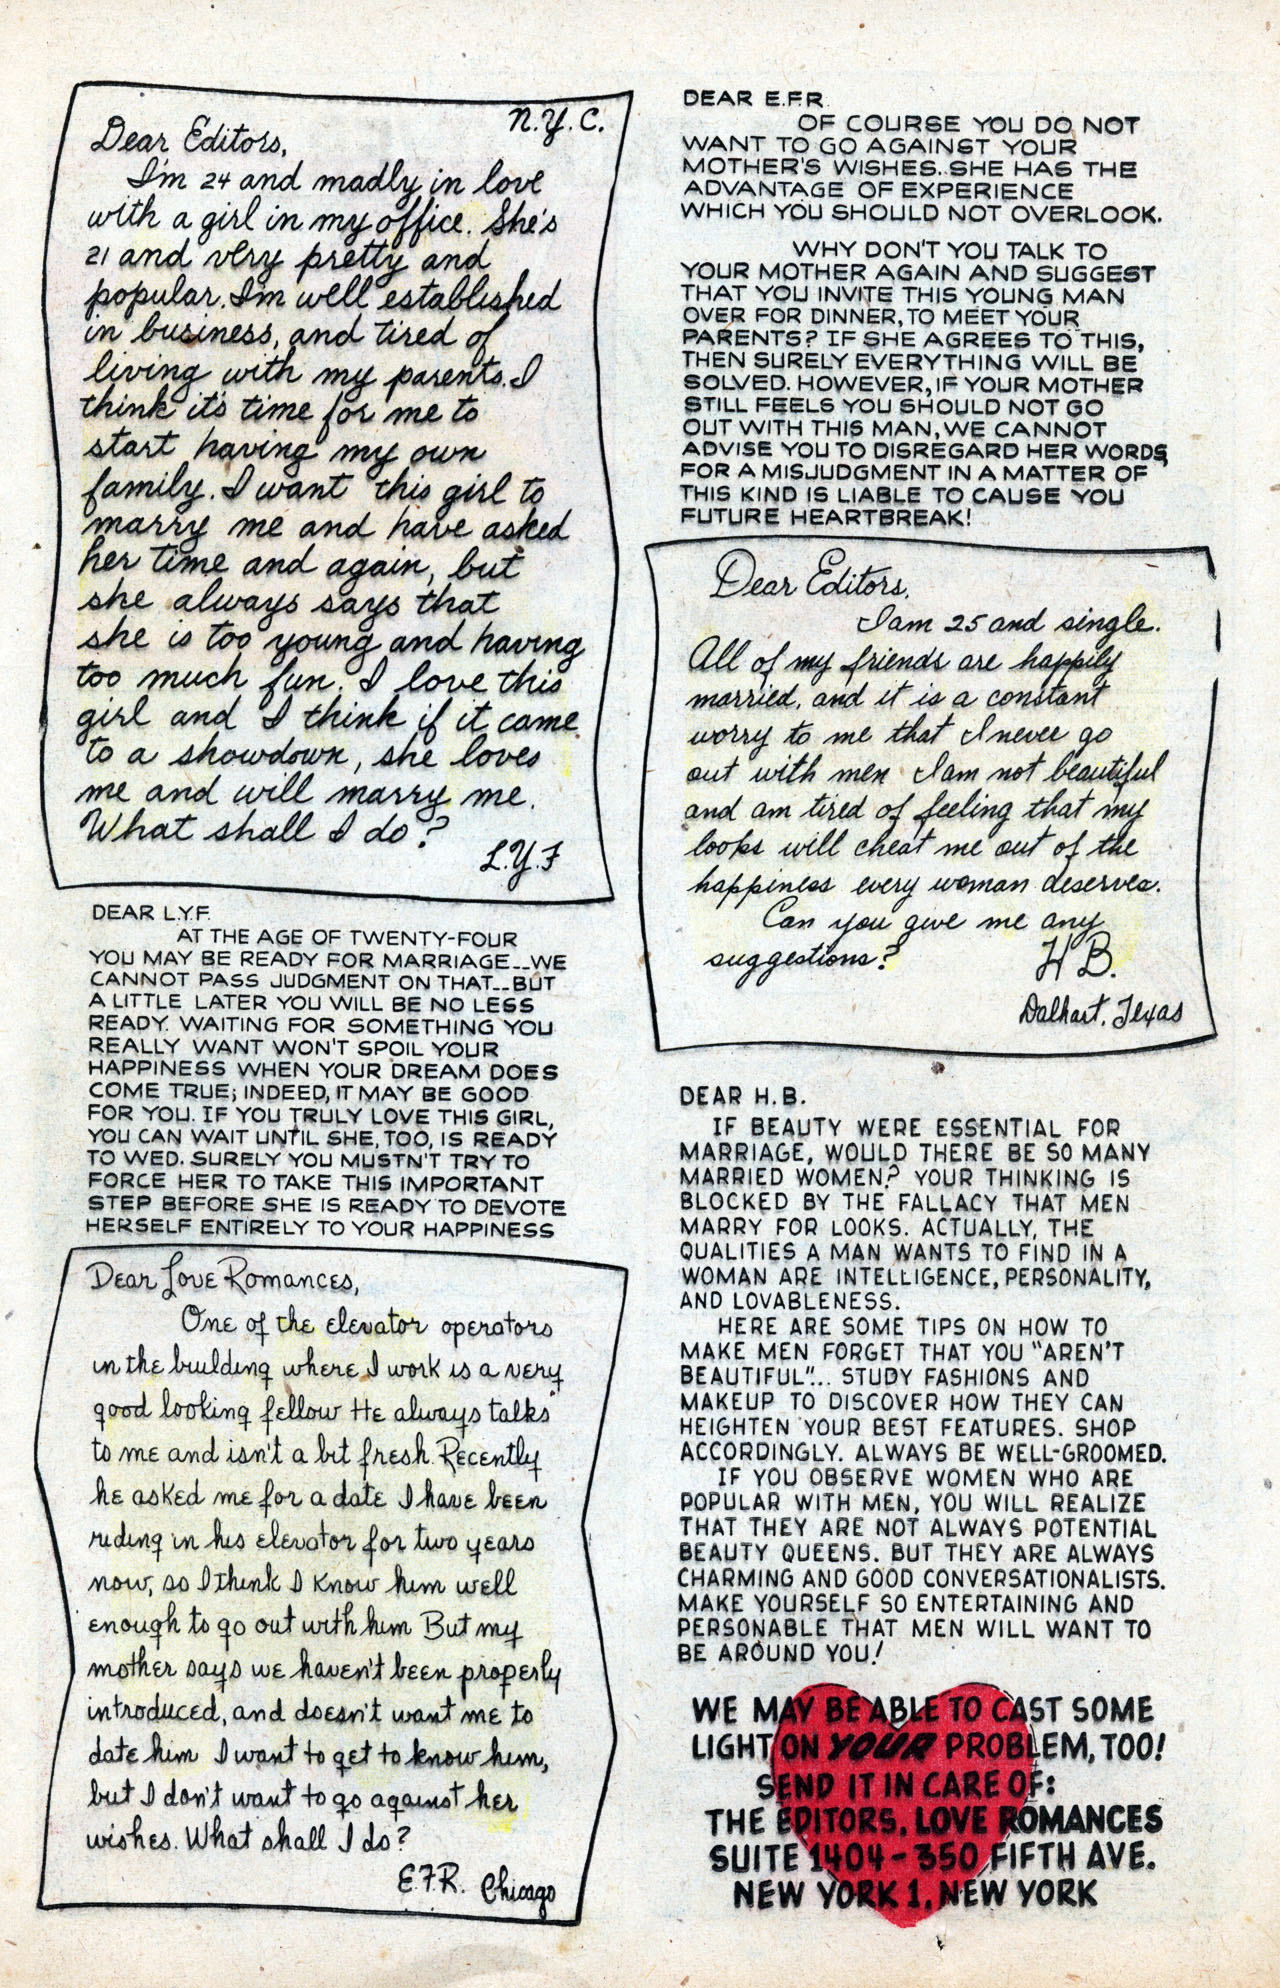 N.Y.C.
Dear Editors,
I'm 24 and madly in love
with a girl in my office. She's
21 and very pretty and
popular. I'm well established
in business, and tired of
living with my parents. I
think it's time for me to
start having my own
family. I want this girl to
marry me and have asked
her time and again, but
she always says that
she is too young and having
too much fun. I love this
girl and I think if it came
to a showdown, she loves
me and will marry me.
What shall I do?
L.Y.F
DEAR L.Y.F.
AT THE AGE OF TWENTY-FOUR
YOU MAY BE READY FOR MARRIAGE__WE
CANNOT PASS JUDGMENT ON THAT__BUT
A LITTLE LATER YOU WILL BE NO LESS
READY. WAITING FOR SOMETHING YOU
REALLY WANT WON'T SPOIL YOUR
HAPPINESS WHEN YOUR DREAM DOES
COME TRUE; INDEED, IT MAY BE GOOD
FOR YOU. IF YOU TRULY LOVE THIS GIRL,
YOU CAN WAIT UNTIL SHE, TOO, IS READY
TO WED. SURELY YOU MUSTN'T TRY TO
FORCE HER TO TAKE THIS IMPORTANT
STEP BEFORE SHE IS READY TO DEVOTE
HERSELF ENTIRELY TO YOUR HAPPINESS
Dear Love Romances,
One of the elevator operators
in the building where I work is a very
good looking fellow He always talks
to me and isn't a bit fresh. Recently
he asked me for a date I have been
riding in his elevator for two years
now, so I think I know him well
enough to go out with him But my
mother says we haven't been properly
introduced, and doesn't want me to
date him I want to get to know him,
but I don't want to go against her
wishes. What shall I do?
E.F.R. Chicago
DEAR E.F.R.
OF COURSE YOU DO NOT
WANT TO GO AGAINST YOUR
MOTHER'S WISHES. SHE HAS THE
ADVANTAGE OF EXPERIENCE
WHICH YOU SHOULD NOT OVERLOOK.
WHY DON'T YOU TALK TO
YOUR MOTHER AGAIN AND SUGGEST
THAT YOU INVITE THIS YOUNG MAN
OVER FOR DINNER, TO MEET YOUR
PARENTS? IF SHE AGREES TO THIS,
THEN SURELY EVERYTHING WILL BE
SOLVED. HOWEVER, IF YOUR MOTHER
STILL FEELS YOU SHOULD NOT GO
OUT WITH THIS MAN, WE CANNOT
ADVISE YOU TO DISREGARD HER WORDS,
FOR A MISJUDGMENT IN A MATTER OF
THIS KIND IS LIABLE TO CAUSE YOU
FUTURE HEARTBREAK!
Dear Editors,
I am 25 and single.
All of my friends are happily
married, and it is a constant
worry to me that I never go
out with men I am not beautiful
and am tired of feeling that my
looks will cheat me out of the
happiness every woman deserves.
Can you give me any
suggestions?
H B.
Dalhart, Texas
DEAR H.B.
IF BEAUTY WERE ESSENTIAL FOR
MARRIAGE, WOULD THERE BE SO MANY
MARRIED WOMEN? YOUR THINKING IS
BLOCKED BY THE FALLACY THAT MEN
MARRY FOR LOOKS. ACTUALLY, THE
QUALITIES A MAN WANTS TO FIND IN A
WOMAN ARE INTELLIGENCE, PERSONALITY,
AND LOVABLENESS.
HERE ARE SOME TIPS ON HOW TO
MAKE MEN FORGET THAT YOU "AREN'T
BEAUTIFUL"... STUDY FASHIONS AND
MAKEUP TO DISCOVER HOW THEY CAN
HEIGHTEN YOUR BEST FEATURES. SHOP
ACCORDINGLY. ALWAYS BE WELL-GROOMED.
IF YOU OBSERVE WOMEN WHO ARE
POPULAR WITH MEN, YOU WILL REALIZE
THAT THEY ARE NOT ALWAYS POTENTIAL
BEAUTY QUEENS. BUT THEY ARE ALWAYS
CHARMING AND GOOD CONVERSATIONALISTS.
MAKE YOURSELF SO ENTERTAINING AND
PERSONABLE THAT MEN WILL WANT TO
BE AROUND YOU!
WE MAY BE ABLE TO CAST SOME
LIGHT ON YOUR PROBLEM, TOO!
SEND IT IN CARE OF:
THE EDITORS, LOVE ROMANCES
SUITE 1404-350 FIFTH AVE.
NEW YORK 1, NEW YORK